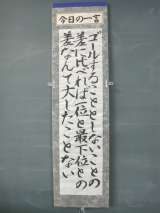 今日の一言
ゴールすることとしないことの
差に比べれば一位と最下位との
差なんて大したことない